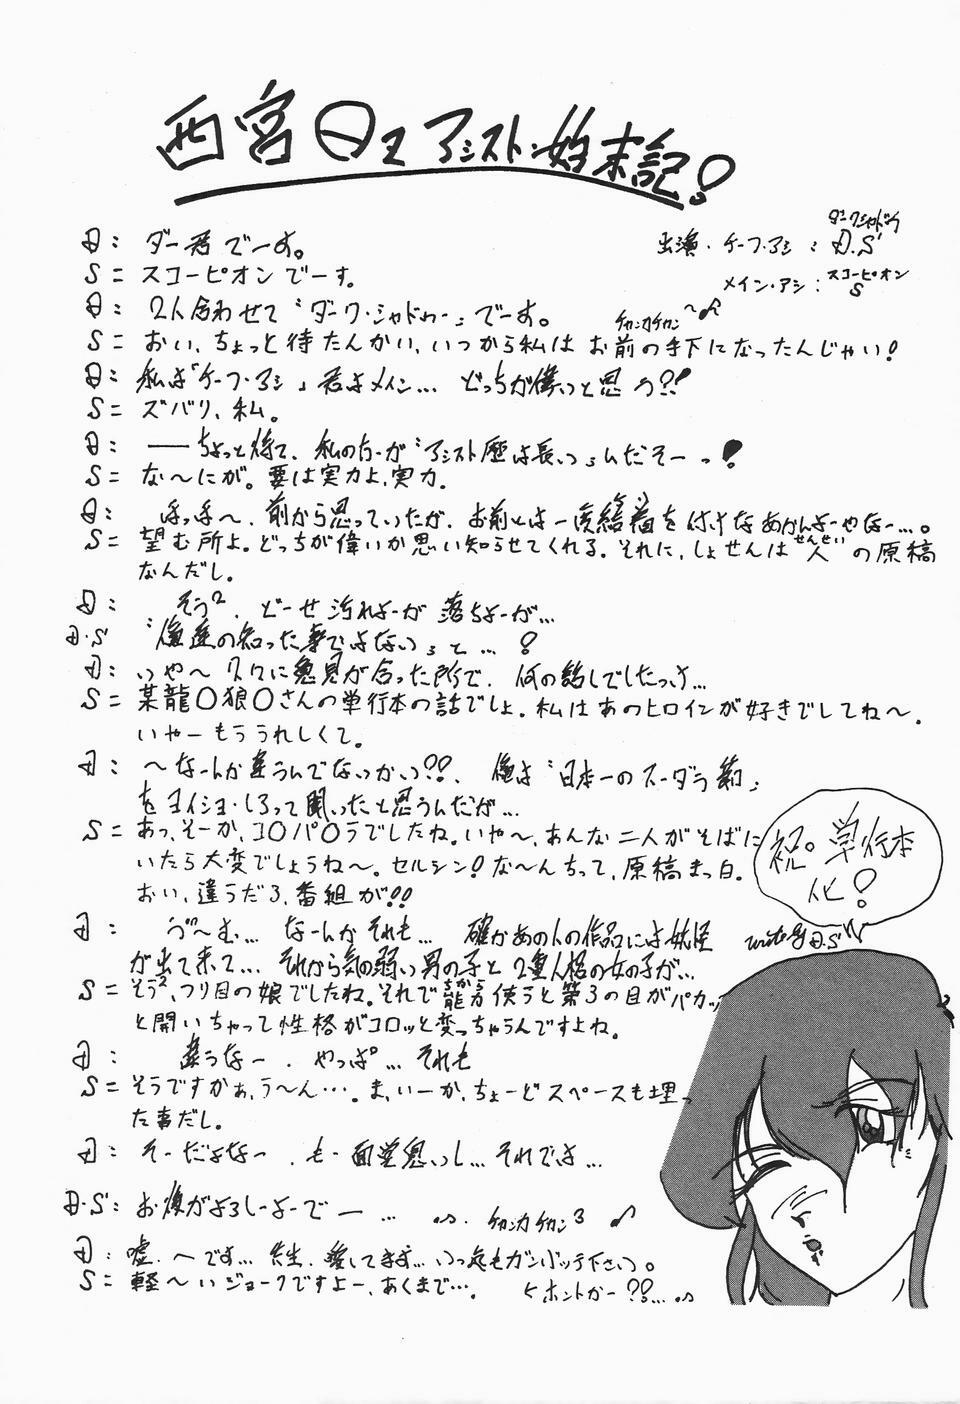 西宮日王アシスト始末記!
ダークシャドウ
出演・チーフ・アシ:D.S
スコーピオン
メイン・アシ:S
D:ダー君でーす。
S=スコーピオンでーす。
D:2人合わせて〝ダーク・シャドゥー〟でーす。
チャンカチャカン〜♪
S=おい、ちょっと待たんかい、いつから私はお前の手下になったんじゃい!
D:私は「チーフ・アシ」君はメイン… どっちが偉いっと思う?!
S=ズバリ、私。
D:――ちょっと待て、私の方が〝アシスト歴は長い〟んだぞーっ!
S=な〜にが。要は実力よ、実力。
D:ほっほ〜、前から思っていたが、お前とは一度結着を付けなあかんよーやなー…。
S=望む所よ。どっちが偉いか思い知らせてくれる。それに、しょせんは人の原稿
せんせい
なんだし。
D:そう²、どーせ汚れよーが落ちよーが…
D・S 〝俺達の知った事ではない〟と…!
D:いや〜久々に意見が合った所で、何の話しでしたっけ…
S=某龍〇狼〇さんの単行本の話でしょ。私はあのヒロインが好きでしてね〜。
いやーもううれしくて。
D:〜なーんか違うんでないかい??、俺は〝日本一のスーダラ節〟
をヨイショ・しろって聞いったと思うんだが…
S=あっ、そーか、コ〇パ〇ラでしたね。いや〜、あんな二人がそばに
いたら大変でしょうね〜。セルシン!な〜んちって、原稿まっ白。
おい、違うだろ、番組が!!
D:う〜む… なーんかそれも… 確かあの人の作品には妖怪
が出て来て… それから気の弱い男の子と2重人格の女の子が…
S=そう²、つり目の娘でしたね。それで能力使うと第3の目がパカッ
ちから
と開いちゃって性格がコロッと変っちゃうんですよね。
D:違うなー、やっぱ…それも
S=そうですかぁ、う〜ん…。ま、いーか、ちょーどスペースも埋っ
た事だし。
D:そーだよなー、も一面堂臭いし…それでは…
D・S:お後がよろしーよーでー… チャンカチャカン³ ♪
D:嘘、〜です… 先生、愛してます… いつ迄もガンバッテ下さい。
S=軽〜いジョークですよー、あくまで…。 ヒホントかー??…
祝。単行本
化!
write by D.S